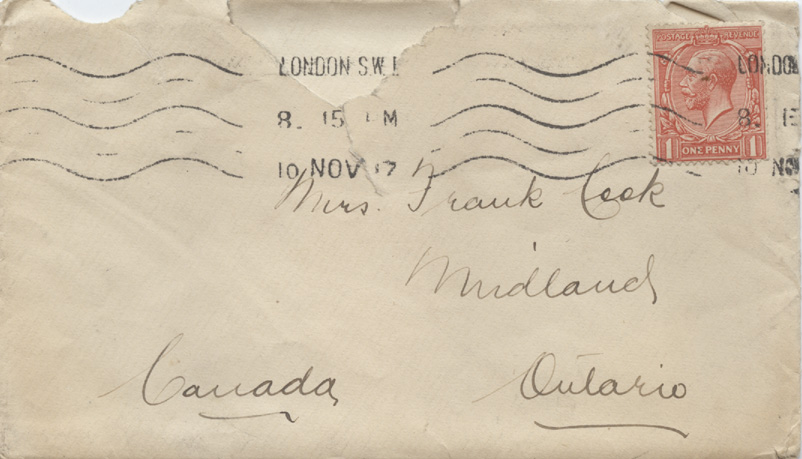 LONDON S.W.1
8. 15 PM
10 NOV 17
POSTAGE REVENUE
1 ONE PENNY 1
LONDON
8. 15
10 NOV
Mrs. Frank Cook
Midland
Ontario
Canada